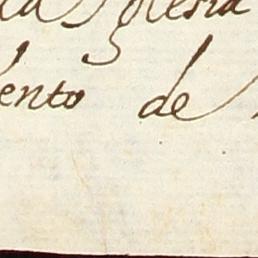 la Iglesia
ento de